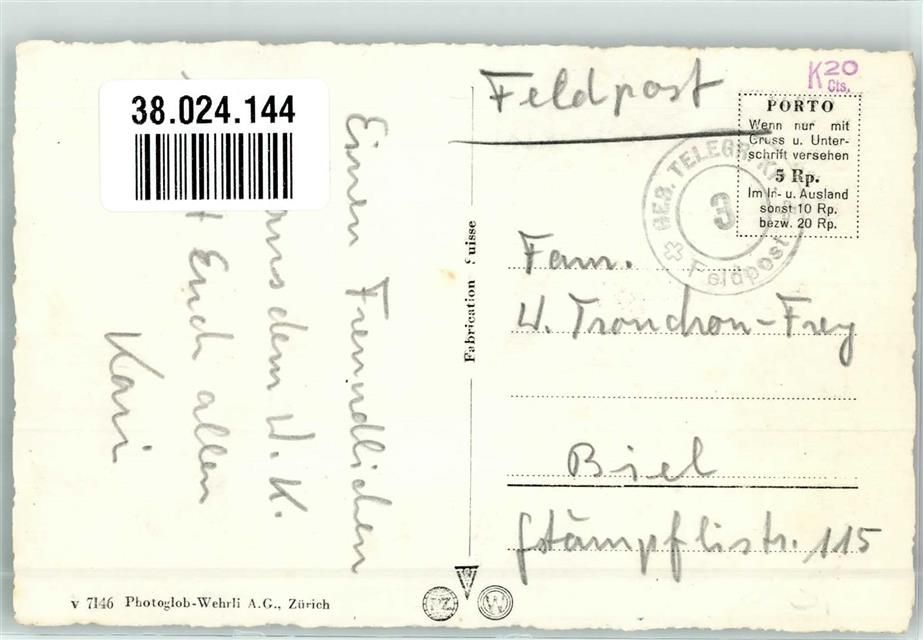 38.024.144
Einen Freundlichen
aus dem W. K.
Euch allen
Kari
Fabrication Suisse
v 7146 Photoglob-Wehrli A.G., Zürich
PZ
W
Feldpost
K20
Cts.
PORTO
Wenn nur mit
Gruss u. Unter-
schrift versehen
5 Rp.
Im In- u. Ausland
sonst 10 Rp.
bezw. 20 Rp.
GEB. TELEGR. KP.
3
Feldpost
Fam.
W. Tronchon-Frey
Biel
Stämpflistr. 115